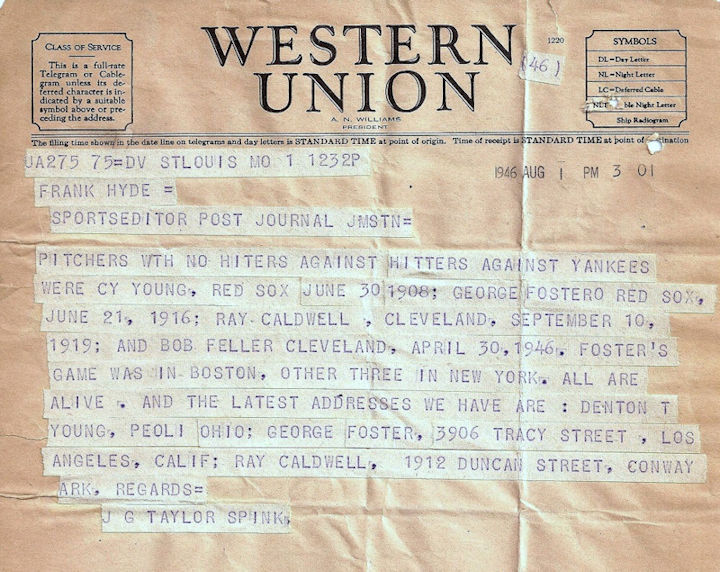 CLASS OF SERVICE
This is a full-rate
Telegram or Cable-
gram unless its de-
ferred character is in-
dicated by a suitable
symbol above or pre-
ceding the address.
WESTERN
UNION
1220
(46)
A. N. WILLIAMS
PRESIDENT
SYMBOLS
DL=Day Letter
NL=Night Letter
LC=Deferred Cable
NLT ble Night Letter
Ship Radiogram
The filing time shown in the date line on telegrams and day letters is STANDARD TIME at point of origin. Time of receipt is STANDARD TIME at point of ination
UA275 75=DV STLOUIS MO 1 1232P
1946 AUG 1 PM 3 01
FRANK HYDE =
SPORTSEDITOR POST JOURNAL JMSTN=
PITCHERS WTH NO HITERS AGAINST HITTERS AGAINST YANKEES
WERE CY YOUNG, RED SOX JUNE 30 1908; GEORGE FOSTERO RED SOX,
JUNE 21, 1916; RAY CALDWELL , CLEVELAND, SEPTEMBER 10,
1919; AND BOB FELLER CLEVELAND, APRIL 30, 1946. FOSTER'S
GAME WAS IN BOSTON, OTHER THREE IN NEW YORK. ALL ARE
ALIVE . AND THE LATEST ADDRESSES WE HAVE ARE : DENTON T
YOUNG, PEOLI OHIO; GEORGE FOSTER, 3906 TRACY STREET , LOS
ANGELES, CALIF; RAY CALDWELL, 1912 DUNCAN STREET, CONWAY
ARK, REGARDS=
J G TAYLOR SPINK.